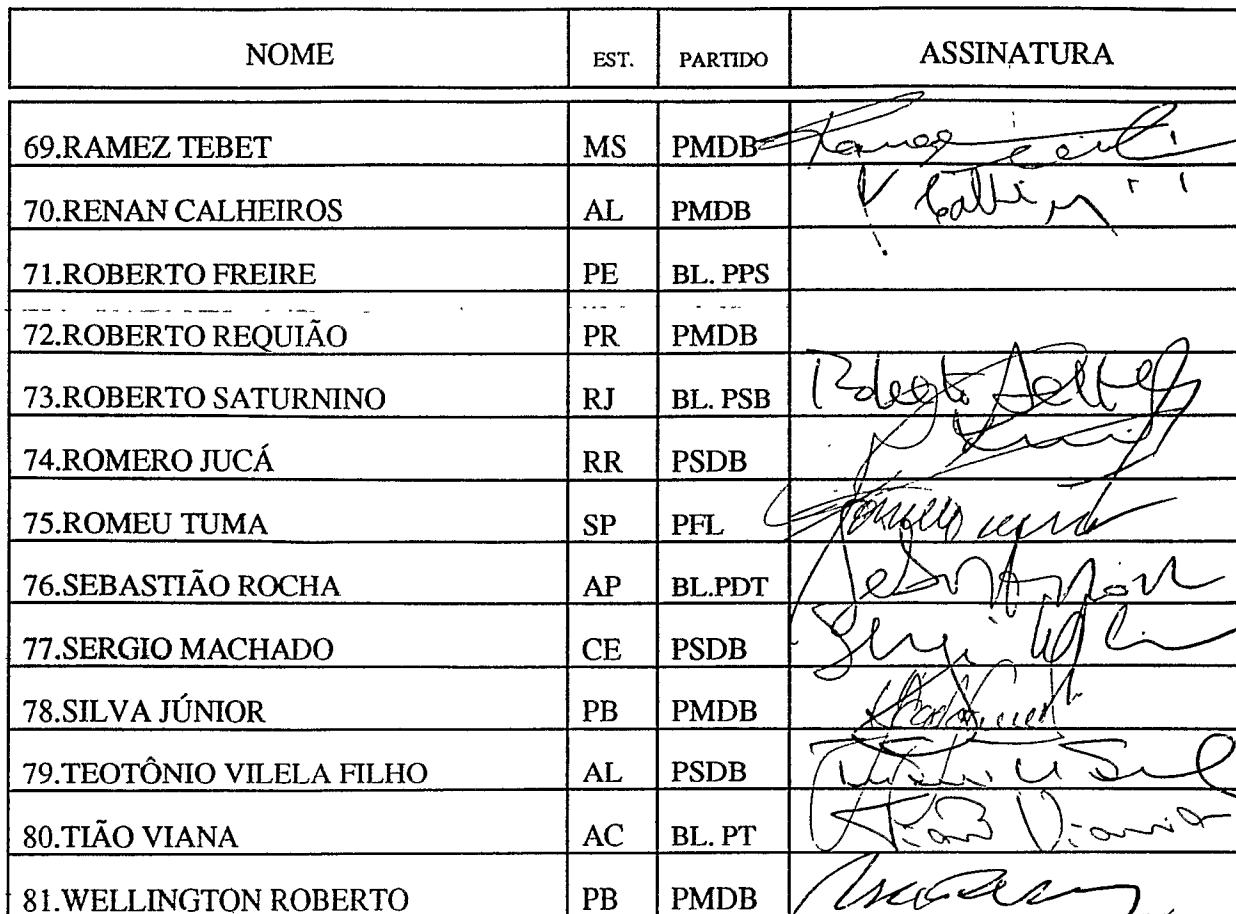 NOME EST. PARTIDO ASSINATURA
69.RAMEZ TEBET MS PMDB
70.RENAN CALHEIROS AL PMDB
71.ROBERTO FREIRE PE BL. PPS
72.ROBERTO REQUIÃO PR PMDB
73.ROBERTO SATURNINO RJ BL. PSB
74.ROMERO JUCÁ RR PSDB
75.ROMEU TUMA SP PFL
76.SEBASTIÃO ROCHA AP BL.PDT
77.SERGIO MACHADO CE PSDB
78.SILVA JÚNIOR PB PMDB
79.TEOTÔNIO VILELA FILHO AL PSDB
80.TIÃO VIANA AC BL. PT Tião Viana
81.WELLINGTON ROBERTO PB PMDB